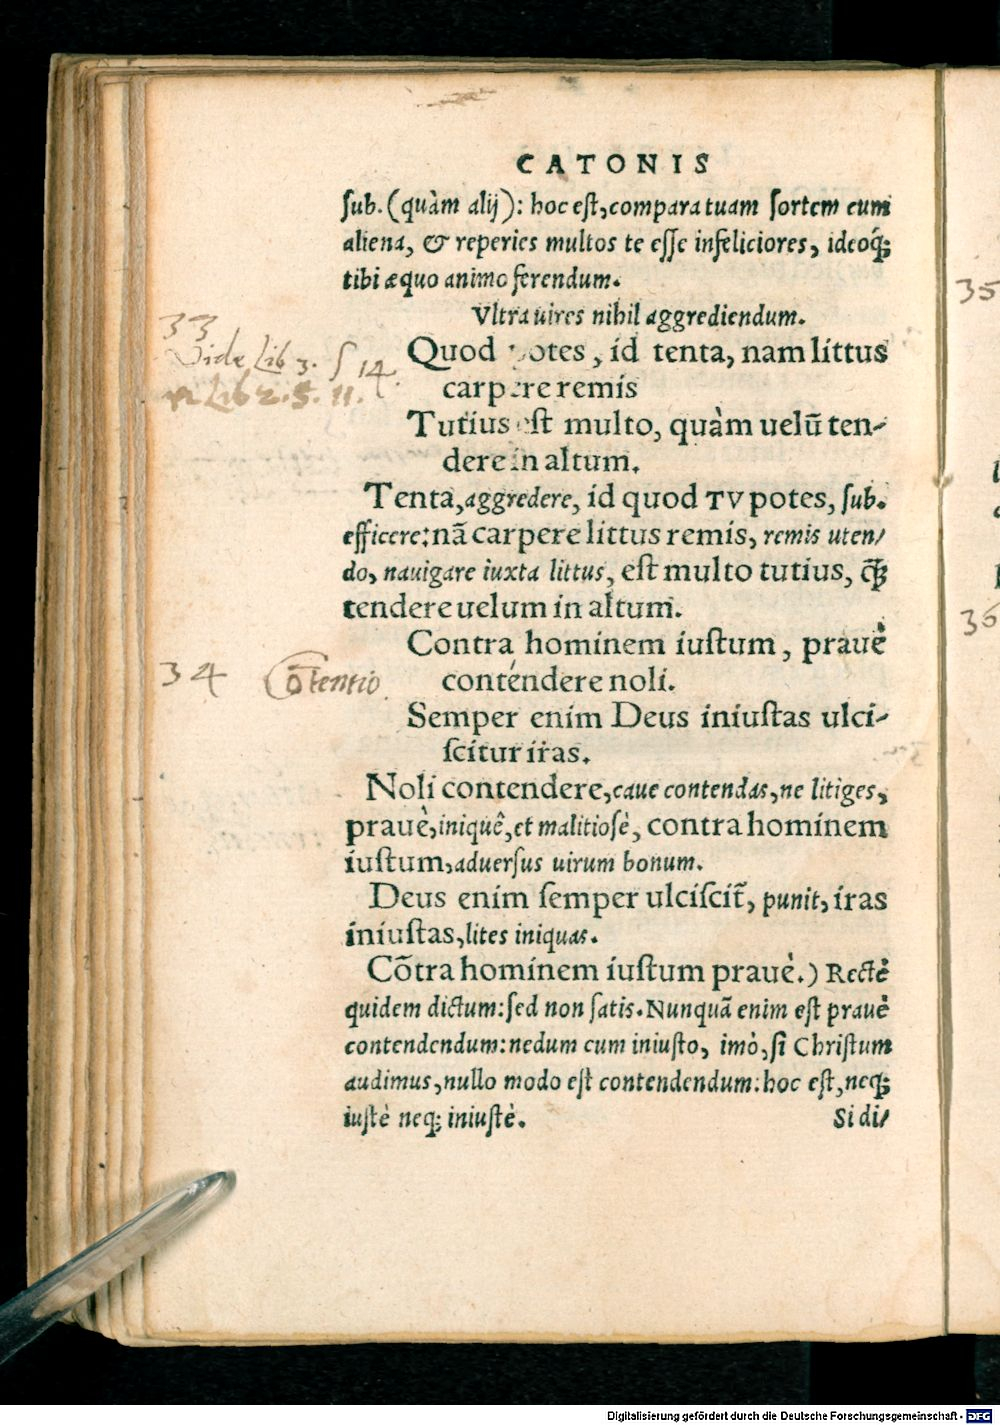 CATONIS
ſub. (quàm alij): hoc eſt, compara tuam ſortem cum
aliena, & reperies multos te eſſe infeliciores, ideoq́;
tibi æquo animo ferendum.
Vltra uires nihil aggrediendum.
33
Vide Lib 3. S 14.
Lib 2. S. 11.
Quod potes, id tenta, nam littus
carpere remis
Tutius eſt multo, quàm uelũ ten-
dere in altum.
Tenta, aggredere, id quod TV potes, ſub.
efficere: nã carpere littus remis, remis uten/
do, nauigare iuxta littus, eſt multo tutius, q̃ꝫ
tendere uelum in altum.
Contra hominem iuſtum, prauè
contendere noli.
34 Cõtentio
Semper enim Deus iniuſtas ulci-
ſcitur iras.
Noli contendere, caue contendas, ne litiges,
prauè, iniquê, et malitioſè, contra hominem
iuſtum, aduerſus uirum bonum.
Deus enim ſemper ulciſcit̃, punit, iras
iniuſtas, lites iniquas.
Cõtra hominem iuſtum prauè.) Rectè
quidem dictum: ſed non ſatis. Nunquã enim eſt prauè
contendendum: nedum cum iniuſto, imò, ſi Chriſtum
audimus, nullo modo eſt contendendum: hoc eſt, neq;
iuſtè neq; iniuſtè.
Si di/
35
36
Digitalisierung gefördert durch die Deutsche Forschungsgemeinschaft - DFG